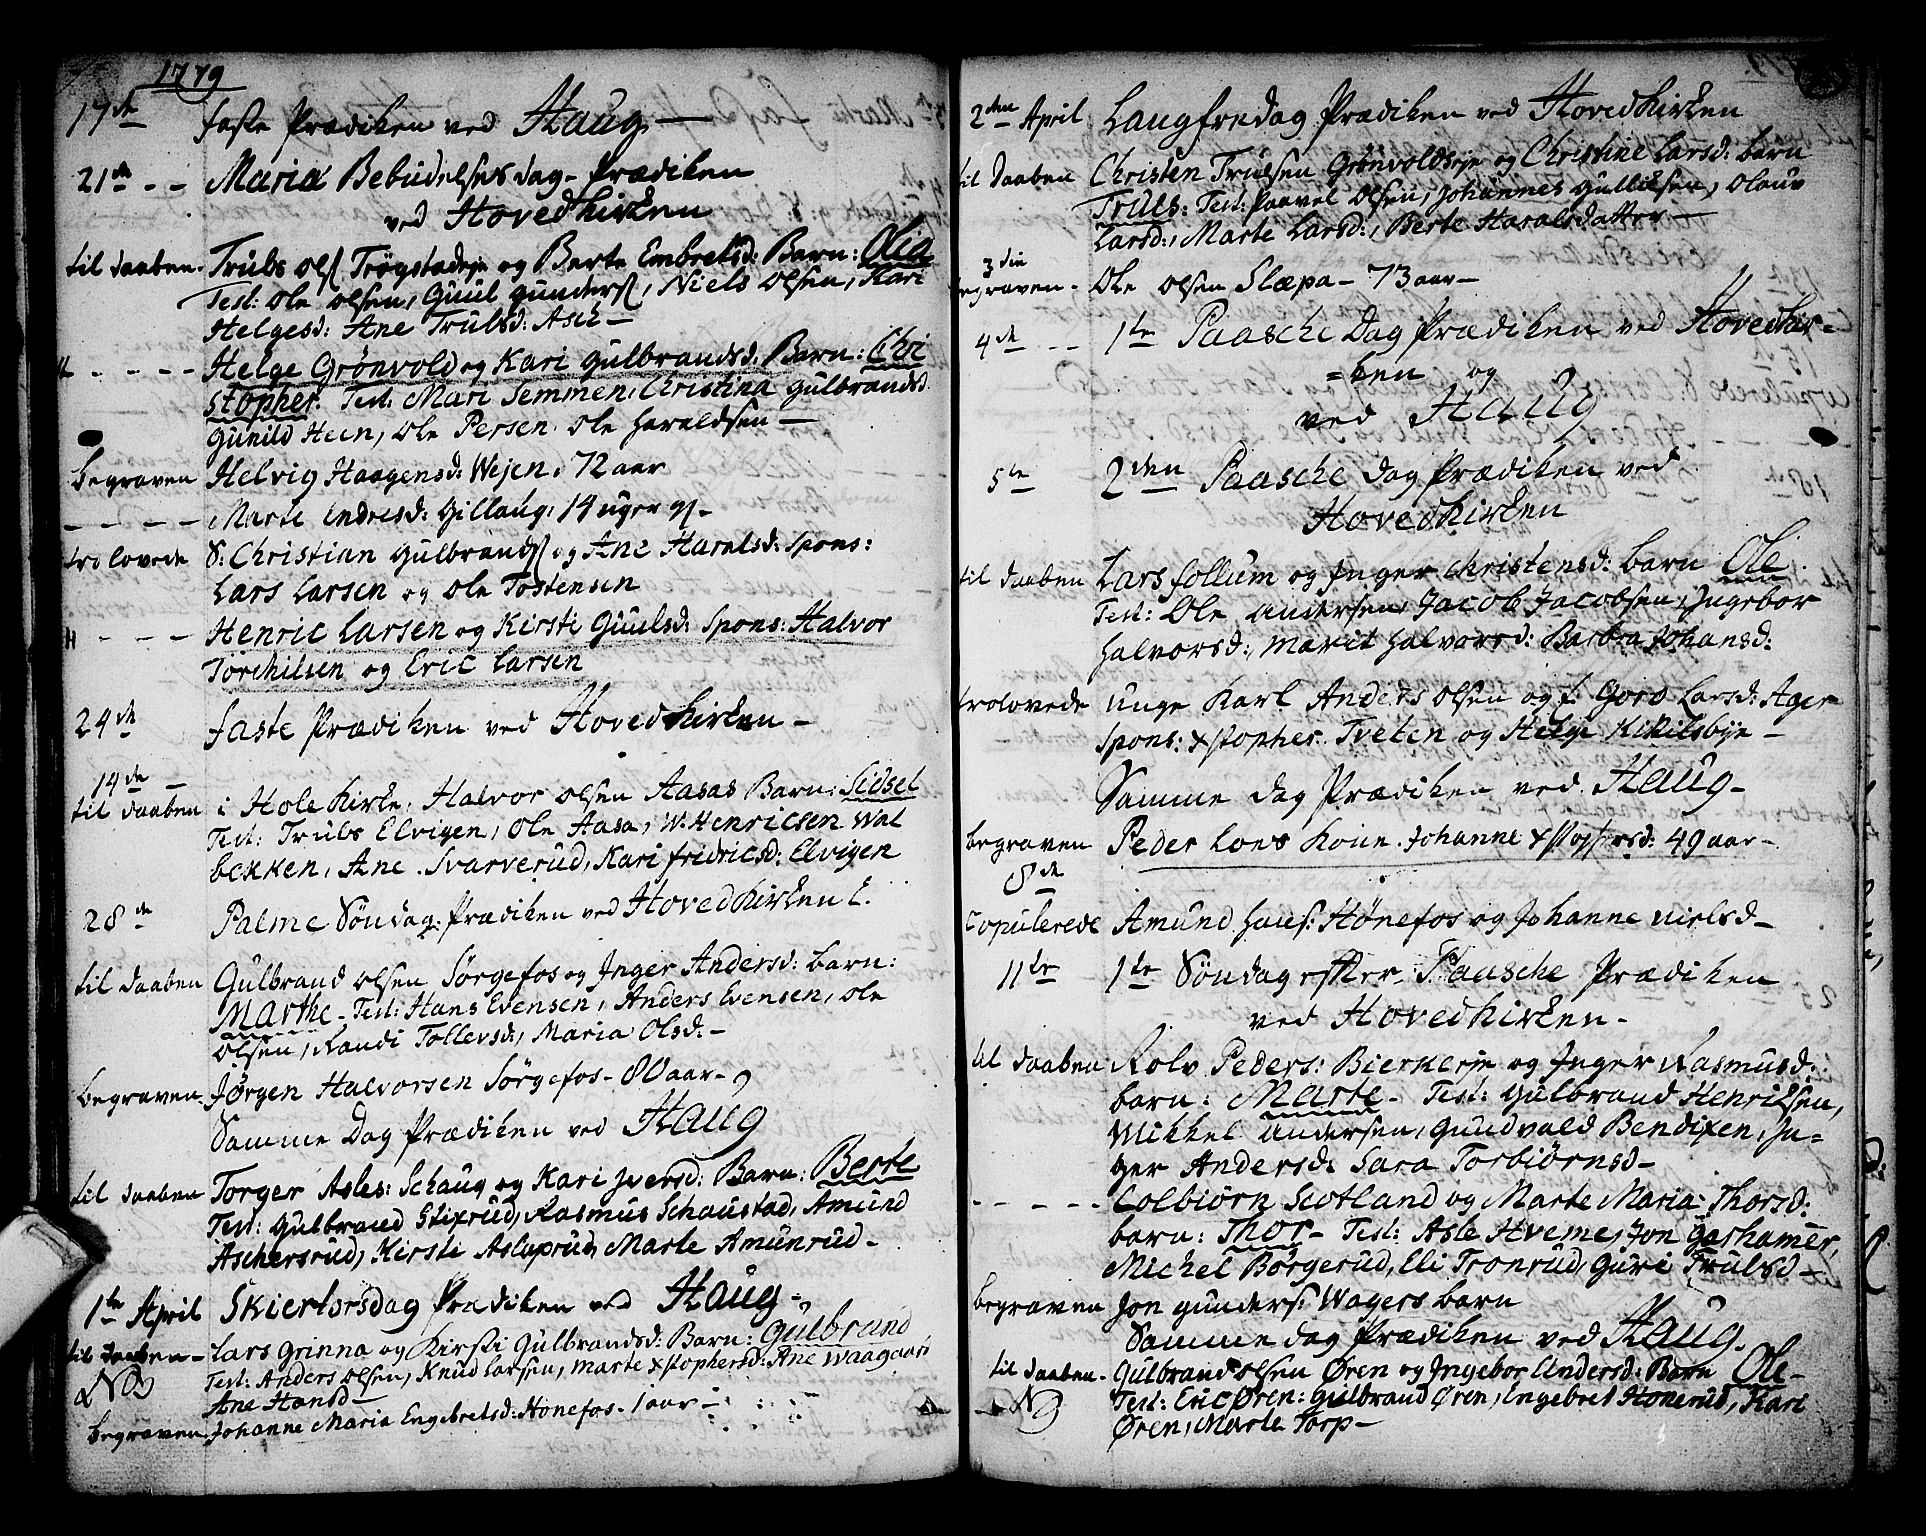 1779
17de faste Prædiken ved Haug —
21de - - Mariæ Bebudelses dag - Prædiken
ved Hovedkirken
til daaben. Trubs Ols Trøgstadeje og Berte Embretsd: Barn: Olia
Test: Ole Olsen, Guul gunders, Niels Olsen, Kari
Helgesd: Ane Trubsd: Asch —
- - - - Helge Grønvold og Kari Gulbrandsd. Barn: Chri
stopher. Test: Mari Semmen, Christina gulbrandsd
Gunild Heen, Ole Persen. Ole Haraldsen —
begraven Helvig Haagensd: Wejen. 72 aar
- - - - Marte Endresd: Gillaug: 14 uger
trolovede S: Christian Gulbrands og Ane Haralsd: Spons:
Lars Larsen og Ole Tostensen
- - - Henric Larsen og Kirsti Guulsd. Spons: Halvor
Torchilsen og Eric Larsen
24de faste Prædiken ved Hovedkirken —
14de —
til daaben i Hole Kirke. Halvor Olsen Aasas Barn: Sidsel
Test: Trubs Elvigen, Ole Aasa, W. Henricsen Wal
bekken, Ane Svarverud, Kari fridricsd: Elvigen
28de Palme Søndag: Prædiken ved Hovedkirken
til daaben Gulbrand Olsen Sørgefos og Inger Andersd: barn:
Marthe - Test: Hans Evensen, Anders Evensen, Ole
Olsen, Randi Tollersd:, Maria Olsd. -
begraven. Jørgen Halvorsen Sørgefos - 80 aar -
Samme Dag Prædiken ved Haug
til daaben Torger Asles: Schaug og Kari Iversd: Barn: Berte
Test: Gulbrand Stixrud, Rasmus Schaustad, Amund
Aschersrud, Kirsti Aslaprud, Marte Amunrud -
1te April Skiertorsdag Prædiken ved Haug -
til daaben - Lars Grinna og Kirsti Gulbrandsd: Barn: Gulbrand
Test: Anders Olsen, Knud Larsen, Marte Xstophersd: Ane Waagaard
Ane Hansd -
begraven. Johanne Maria Engebretsd: Honefos - 1 aar -
2den April Langfredag Prædiken ved Hovedkirken
til daaben Christen Trulsen Grønvoldseje og Christine Larsd: barn
Truls: Test: Paavel Olsen, Johannes Gulliksen, Olauv
Larsd:, Marte Larsd:, Berte Haralsdatter —
3die
begraven - Ole Olsen Slæpa - 73 aar -
4de - - 1te Paasche Dag Prædiken ved Hovedkir=
=ken og
ved Haug
5te 2den Paasche Dag Prædiken ved
Hovedkirken
til daaben Lars follum og Inger Christensd: barn Ole.
Test: Ole Andersen, Jacob Jacobsen, Ingebor
Halvorsd:, Marit Halvorsd: Barbra Johansd:
trolovede unge Karl Anders Olsen og f. Goro Larsd: Ager
Spons: Xstopher Tveten og Helge Kikilsbye -
Samme dag Prædiken ved Haug -
begraven Peder Loes Kone. Johanne Xstophersd: 49 aar -
8de
Copulerede Amund Hans: Hønefos og Johanne Nielsd -
11te 1te Søndag efter Paasche Prædiken
ved Hovedkirken -
til daaben Rolv Peders: Bierkeeje og Inger Rasmusd:
barn: Marte - Test: Gulbrand Henriksen,
Mikkel Andersen, Gundvald Bendixen, In=
ger Andersd: Sara Torbiørnsd -
- - - - Colbiørn Scotland og Marte Maria Thorsd:
barn: Thor - Test: Asle Hveme, Jon Gashamer,
Michel Børgerud, Eli Tronrud, Guri Trulsd -
begraven Jon gunders: Wagers barn
Samme dag Prædiken ved Haug.
til daaben. Gulbrand Olsen Øren og Ingebor Andersd: Barn Ole -
Test: Eric Øren: Gulbrand Øren, Engebret Honerud, Kari
Øren, Marte Torp -